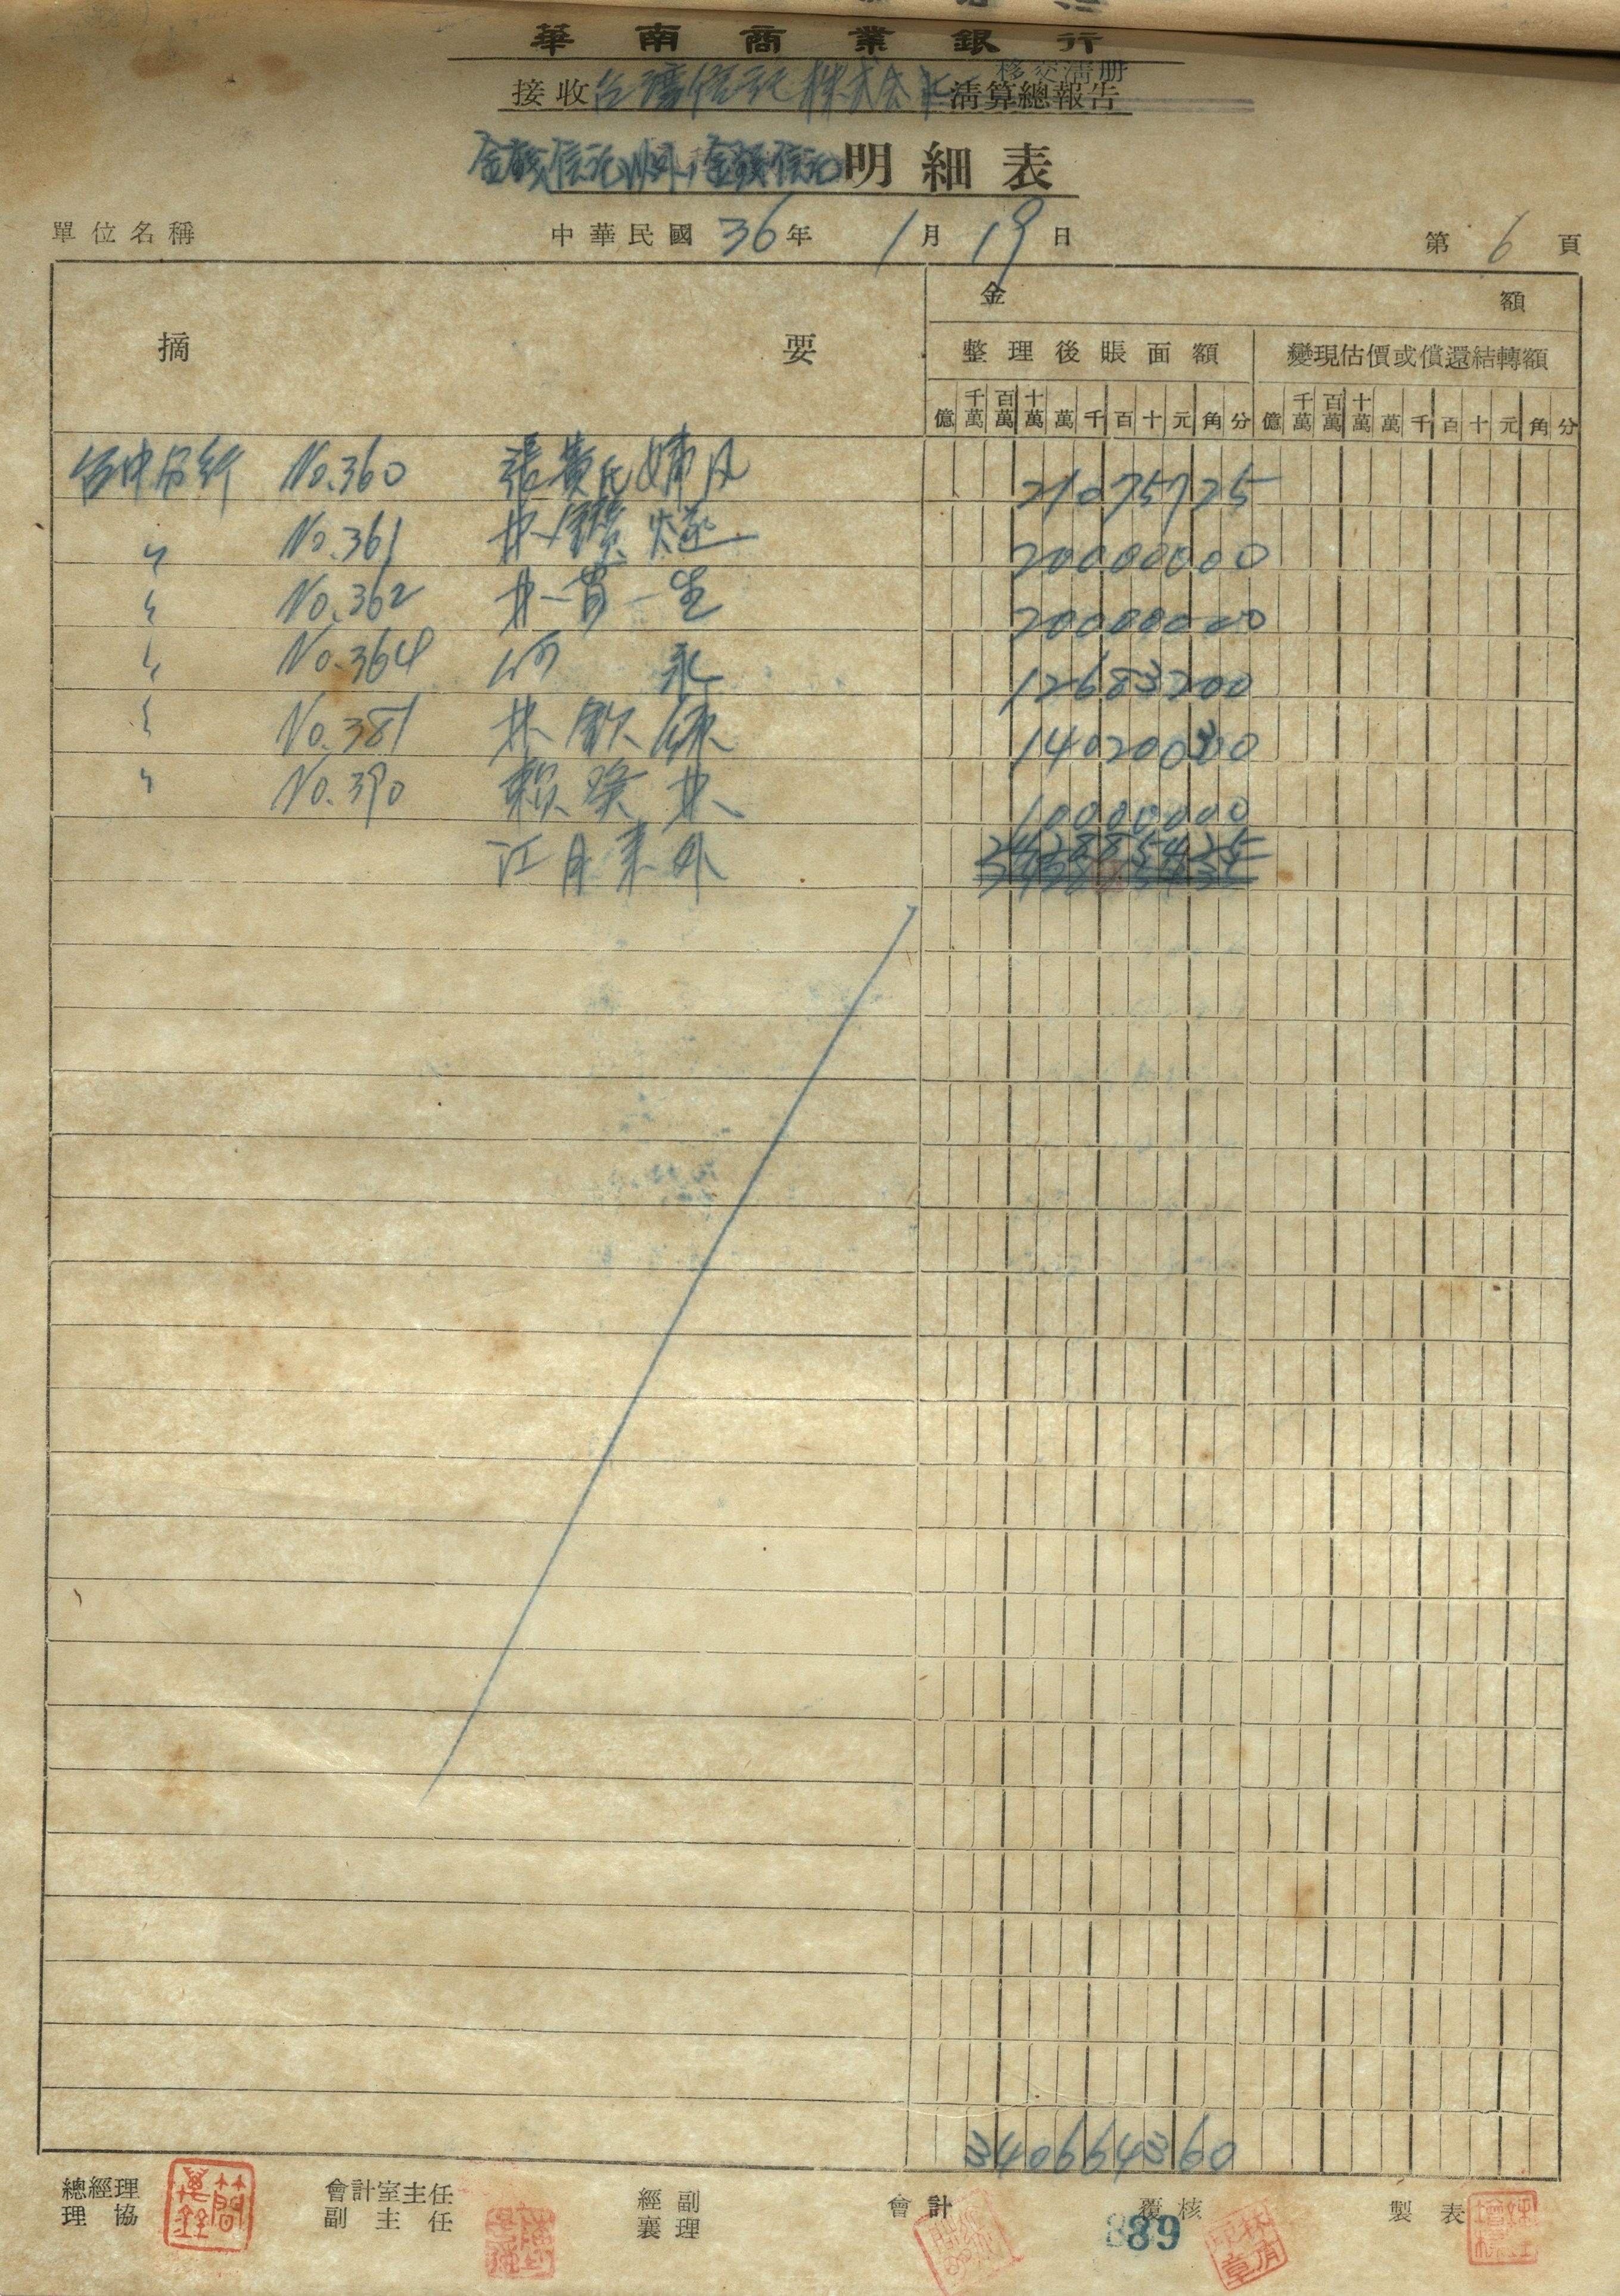 華南商業銀行
移交清册
接收台灣信託株式会社清算總報告
金錢信託以外ノ金錢信託明細表
單位名稱 中華民國36年1月19日 第6頁
摘要 金額
整理後賬面額 變現估價或償還結轉額
億 千萬 百萬 十萬 萬 千 百 十 元 角 分 億 千萬 百萬 十萬 萬 千 百 十 元 角 分
台中分行 No.360 張黃氏 21075725
〃 No.361 林 燧 20000000
〃 No.362 林 一生 20000000
〃 No.364 何永 12683200
〃 No.381 林欽 14020000
〃 No.390 賴 林 10000000
江
340664360
總經理 會計室主任 經副 會計 覆核 製表
協理 副主任 襄理
889